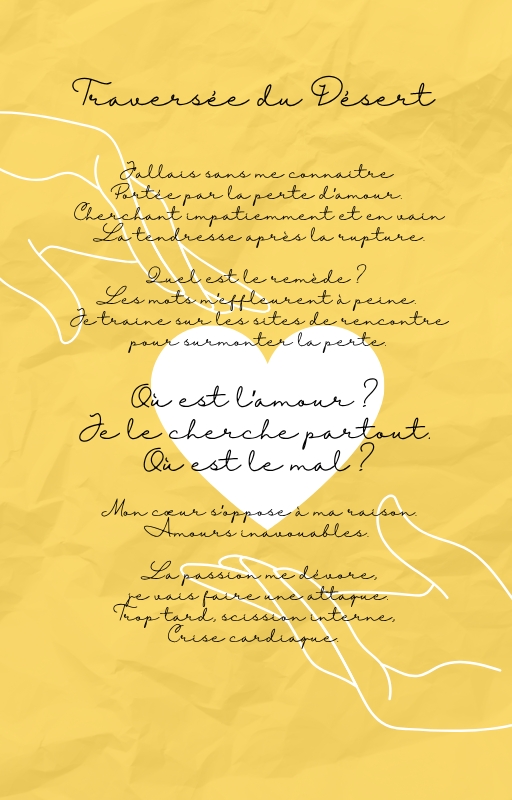 Traversée du Désert
J'allais sans me connaitre
Portée par la perte d'amour.
Cherchant impatiemment et en vain
La tendresse après la rupture.
Quel est le remède ?
Les mots m'effleurent à peine.
Je traine sur les sites de rencontre
pour surmonter la perte.
Où est l'amour ?
Je le cherche partout.
Où est le mal ?
Mon cœur s'oppose à ma raison.
Amours inavouables.
La passion me dévore,
je vais faire une attaque.
Trop tard, scission interne,
Crise cardiaque.